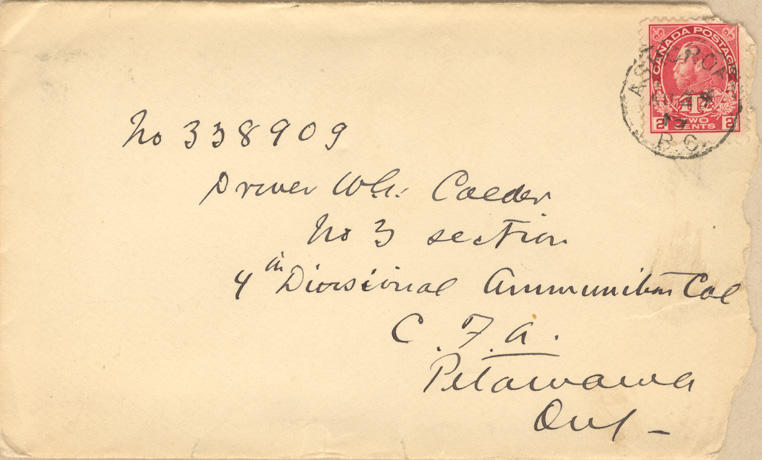 CANADA POSTAGE
1Tc
2 TWO CENTS 2
ASHCROFT
17
B.C.
No 338909
Driver Wm. Calder
No 3 section
4th Divisional Ammunition Col
C. F. A.
Petawawa
Ont